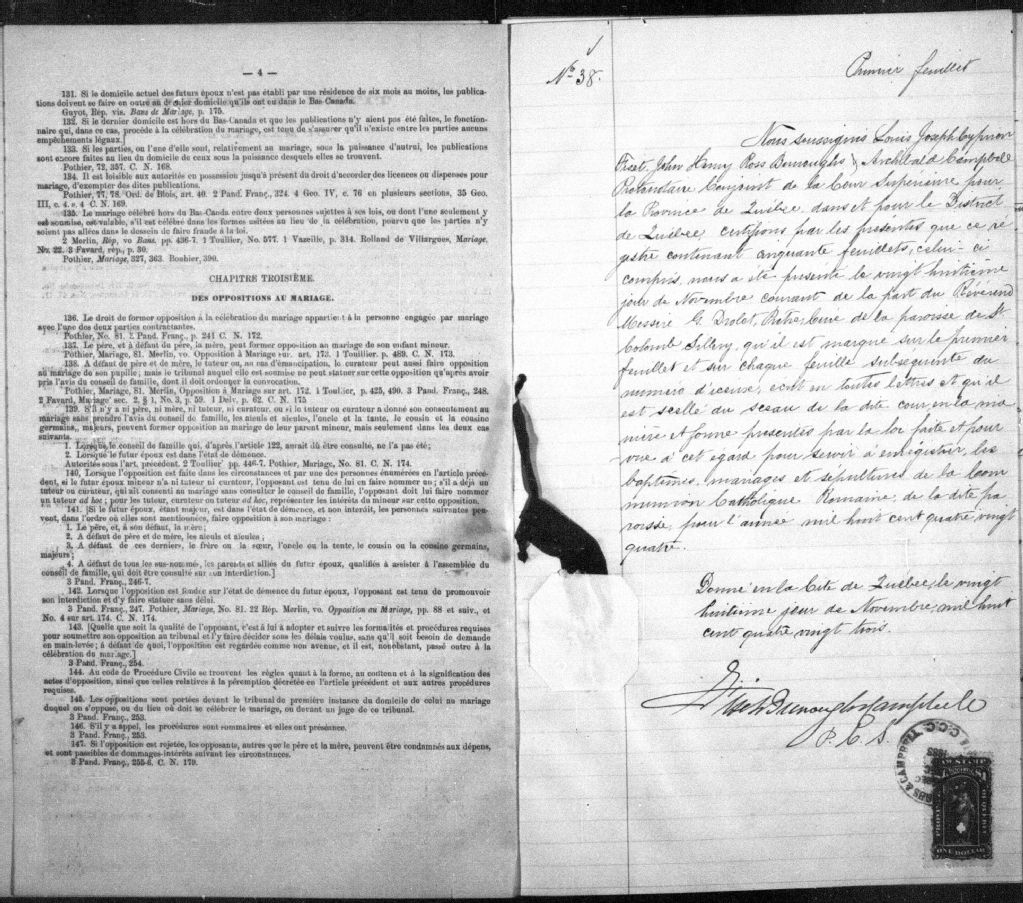 — 4 —
131. Si le domicile actuel des futurs époux n'est pas établi par une résidence de six mois au moins, les publica-
tions doivent se faire en outre au dernier domicile qu'ils ont eu dans le Bas-Canada.
Guyot, Rép. vis. Bans de Mariage, p. 175.
132. Si le dernier domicile est hors du Bas-Canada et que les publications n'y aient pas été faites, le fonction-
naire qui, dans ce cas, procède à la célébration du mariage, est tenu de s'assurer qu'il n'existe entre les parties aucuns
empêchements légaux.]
133. Si les parties, ou l'une d'elle sont, relativement au mariage, sous la puissance d'autrui, les publications
sont encore faites au lieu du domicile de ceux sous la puissance desquels elles se trouvent.
Pothier, 72, 357. C. N. 168.
134. Il est loisible aux autorités en possession jusqu'à présent du droit d'accorder des licences ou dispenses pour
mariage, d'exempter des dites publications.
Pothier, 77, 78. Ord. de Blois, art. 40. 2 Pand. Franç., 324. 4 Geo. IV, c. 76 en plusieurs sections, 35 Geo.
III, c. 4. s. 4 C. N. 169.
135. Le mariage célébré hors du Bas-Canda entre deux personnes sujettes à ses lois, ou dont l'une seulement y
est soumise, est valable, s'il est célébré dans les formes usitées au lieu de la célébration, pourvu que les parties n'y
soient pas allées dans le dessein de faire fraude à la loi.
2 Merlin, Rép, vo Bans. pp. 436-7. 1 Toullier, No. 577. 1 Vazeille, p. 314. Rolland de Villargues, Mariage,
No. 22. 3 Favard, rép., p. 30.
Pothier, Mariage, 327, 363. Bouhier, 390.
CHAPITRE TROISIÈME.
DES OPPOSITIONS AU MARIAGE.
136. Le droit de former opposition à la célébration du mariage appartient à la personne engagée par mariage
avec l'une des deux parties contractantes.
Pothier, No. 81. 3 Pand. Franç., p. 241 C. N. 172.
137. Le père, et à défaut du père, la mère, peut former opposition au mariage de son enfant mineur.
Pothier, Mariage, 81. Merlin, vo. Opposition à Mariage sur. art. 173. 1 Touillier. p. 489. C. N. 173.
138. A défaut de père et de mère, le tuteur ou, au cas d'émancipation, le curateur peut aussi faire opposition
au mariage de son pupille; mais le tribunal auquel elle est soumise ne peut statuer sur cette opposition qu'après avoir
pris l'avis du conseil de famille, dont il doit ordonner la convocation.
Pothier, Mariage, 81. Merlin, Opposition à Mariage sur art. 172. 1 Toullier, p. 425, 490. 3 Pand. Franç., 248.
2 Favard, Mariage sec. 2, § 1, No. 3, p. 59. 1 Delv. p. 62. C. N. 175
139. S'il n'y a ni père, ni mère, ni tuteur, ni curateur, ou si le tuteur ou curateur a donné son consentement au
mariage sans prendre l'avis du conseil de famille, les aïeuls et aïeules, l'oncle et la tante, le cousin et la cousine
germains, majeurs, peuvent former opposition au mariage de leur parent mineur, mais seulement dans les deux cas
suivants.
1. Lorsque le conseil de famille qui, d'après l'article 122, aurait dû être consulté, ne l'a pas été;
2. Lorsque le futur époux est dans l'état de démence.
Autorités sous l'art. précédent. 2 Toullier pp. 446-7. Pothier, Mariage, No. 81. C. N. 174.
140. Lorsque l'opposition est faite dans les circonstances et par une des personnes énumérées en l'article précé-
dent, si le futur époux mineur n'a ni tuteur ni curateur, l'opposant est tenu de lui en faire nommer un; s'il a déjà un
tuteur ou curateur, qui ait consenti au mariage sans consulter le conseil de famille, l'opposant doit lui faire nommer
un tuteur ad hoc; pour les tuteur, curateur ou tuteur ad hoc, représenter les intérêts du mineur sur cette opposition.
141. [Si le futur époux, étant majeur, est dans l'état de démence, et non interdit, les personnes suivantes peu-
vent, dans l'ordre où elles sont mentionnées, faire opposition à son mariage:
1. Le père, et, à son défaut, la mère;
2. A défaut de père et de mère, les aïeuls et aïeules;
3. A défaut de ces derniers, le frère ou la sœur, l'oncle ou la tante, le cousin ou la cousine germains,
majeurs;
4. A défaut de tous les sus-nommé, les parents et alliés du futur époux, qualifiés à assister à l'assemblée du
conseil de famille, qui doit être consulté sur son interdiction.]
3 Pand. Franç., 246-7.
142. Lorsque l'opposition est fondée sur l'état de démence du futur époux, l'opposant est tenu de promouvoir
son interdiction et d'y faire statuer sans délai.
3 Pand. Franç., 247. Pothier, Mariage, No. 81. 22 Rép. Merlin, vo. Opposition au Mariage, pp. 88 et suiv., et
No. 4 sur art. 174. C. N. 174.
143. [Quelle que soit la qualité de l'opposant, c'est à lui à adopter et suivre les formalités et procédures requises
pour soumettre son opposition au tribunal et l'y faire décider sous les délais voulus, sans qu'il soit besoin de demande
en main-levée; à défaut de quoi, l'opposition est regardée comme non avenue, et il est, nonobstant, passé outre à la
célébration du mariage.]
3 Pand. Franç., 254.
144. Au code de Procédure Civile se trouvent les règles quant à la forme, au contenu et à la signification des
actes d'opposition, ainsi que celles relatives à la péremption décrétée en l'article précédent et aux autres procédures
requises.
145. Les oppositions sont portées devant le tribunal de première instance du domicile de celui au mariage
duquel on s'oppose, ou du lieu où doit se célébrer le mariage, ou devant un juge de ce tribunal.
3 Pand. Franç., 253.
146. S'il y a appel, les procédures sont sommaires et elles ont préséance.
3 Pand. Franç., 253.
147. Si l'opposition est rejetée, les opposants, autres que le père et la mère, peuvent être condamnés aux dépens,
et sont passibles de dommages-intérêts suivant les circonstances.
3 Pand. Franç., 255-6. C. N. 179.
No. 38.
Premier feuillet
Nous soussignés Louis Joseph Cyprien
Fiset, John Henry Ross Burroughs & Archibald Campbell
Protonotaire Conjoint de la Cour Supérieure pour
la Province de Québec, dans et pour le District
de Québec, certifions par les présentes que ce ré-
gistre contenant cinquante feuillets, celui-ci
compris, nous a été présenté le vingt huitième
jour de Novembre courant de la part du Révérend
Messire G. Drolet, Ptre. Curé de la paroisse de St
Colomb Sillery, qu'il est marqué sur le premier
feuillet et sur chaque feuille subséquente du
numéro d'icense, écrit en toutes lettres et qu'il
est scellé du sceau de la dite cour en la ma
nière et forme présentés par la loi faite et pour
vue à cet égard pour servir à enrégistrer les
baptêmes, mariages et sépultures de la Com
munion Catholique Romaine, de la dite pa
roisse, pour l'année mil huit cent quatre vingt
quatre.
Donné en la Cité de Québec, le vingt
huitième jour de Novembre, mil huit
cent quatre vingt trois.
Fiset Burroughs Campbell
P. C. S.
& CAMPBELL
1883
LAW STAMP
$1
ONE DOLLAR